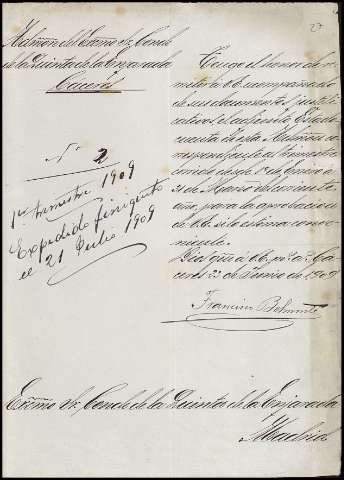 27
Admón del Excmo Sr. Conde
de la Quinta de la Enjarada
Cáceres
Nº 2
1er trimestre 1909
Expedido finiquito
el 21 Julio 1909
Tengo el honor de re-
mitir á V.E. acompañado
de sus documentos justifi-
cativos, el adjunto Estado
cuenta de esta Admón co-
rrespondiente al trimestre
corrido desde 1º de Enero á
31 de Marzo del corriente
año, para la aprobación
de V.E. si lo estima conve-
niente.
Dios gue á V.E. ms as Cá-
ceres 23 de Junio de 1909
Francisco Belmonte
Excmo Sr. Conde de la Quinta de la Enjarada
Madrid